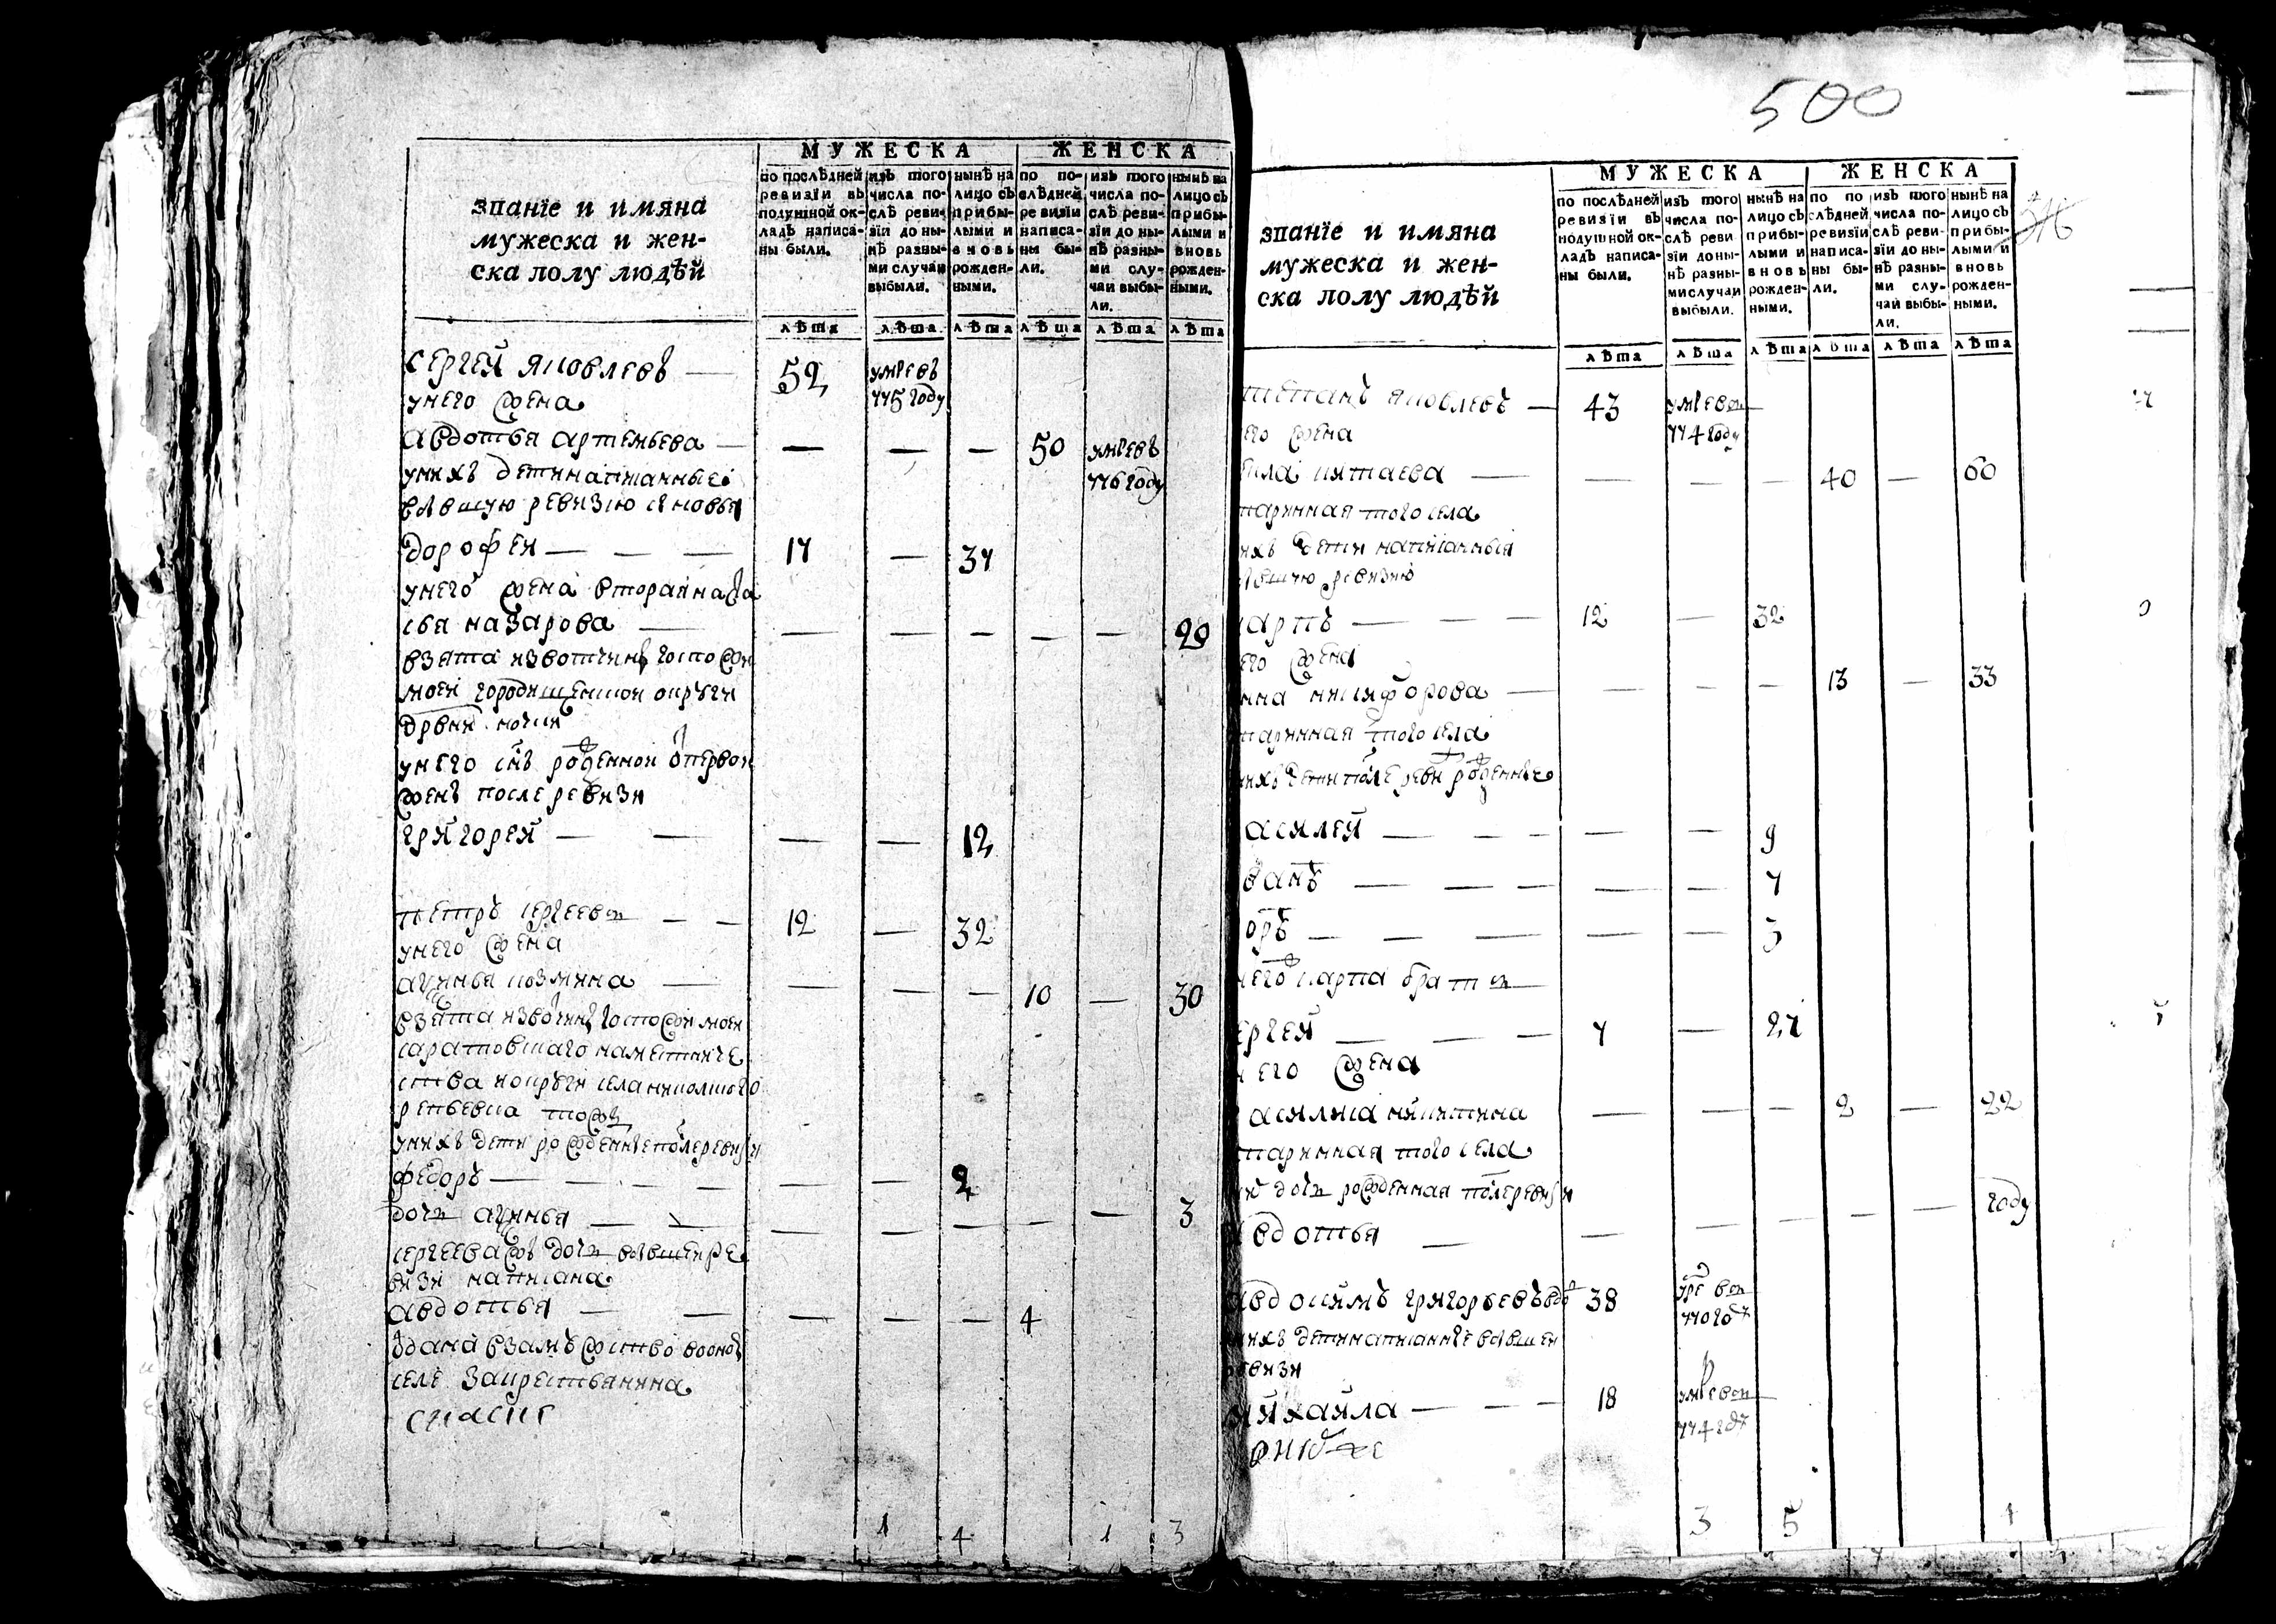 МУЖЕСКА ЖЕНСКА
званїе и имяна
мужеска и жен-
ска полу людѣй
по послѣдней
ревизїи въ
подушной ок-
ладъ написа-
ны были.
изъ того
числа по-
слѣ реви-
зїи до ны-
нѣ разны-
ми случаи
выбыли.
нынѣ на
лицо съ
прибы-
лыми и
вновь
рожден-
ными.
по по-
слѣдней
ревизїи
написа-
ны бы-
ли.
изъ того
числа по-
слѣ реви-
зїи до ны-
нѣ разны-
ми слу-
чаи выбы-
ли.
нынѣ на
лицо съ
прибы-
лыми и
вновь
рожден-
ными.
лѣта лѣта лѣта лѣта лѣта лѣта
сергей яковлевъ — 52 умре въ
775 году
унего жена
авдотья артемьева — — — — 50 умре въ
776 году
унихъ дети написанныеі
вбывшую ревизию сыновья
дорофеи — — — 17 — 37
унего жена вторая ната
сья назарова — — — — — — 29
взята извотчины госпожи
моеи городищенскои округи
дрвни
унего снъ рожденнои отпервои
жены после ревизи
григорей — — — — 12
петръ сергеевъ — — 12 — 32
унего жена
аѳинья козмина — — — — 10 — 30
взята извотчины госпожи моеи
саратовскаго наместниче
ства иокруги села никольского
репьевка тожъ
унихъ дети рожденные послеревизи
федоръ — — — — — — 2
дочь аѳинья — — — — — — — 3
сергеева жъ дочь вбывшеи ре
визи написана
авдотья — — — — — 4
одана взамужство вооном
селе закрестьянина
1 4 1 3
500
МУЖЕСКА ЖЕНСКА
званїе и имяна
мужеска и жен-
ска полу людѣй
по послѣдней
ревизїи въ
подушной ок-
ладъ написа-
ны были.
изъ того
числа по-
слѣ реви
зїи до ны-
нѣ разны-
ми случаи
выбыли.
нынѣ на
лицо съ
прибы-
лыми и
вновь
рожден-
ными.
по по
слѣдней
ревизїи
написа-
ны бы-
ли.
изъ того
числа по-
слѣ реви-
зїи до ны-
нѣ разны-
ми слу-
чаи выбы-
ли.
нынѣ на
лицо съ
прибы-
лыми и
вновь
рожден-
ными.
лѣта лѣта лѣта лѣта лѣта лѣта
степанъ яковлевъ — 43 умре въ
774 году
его жена
китаева — — — — 40 — 60
таринная того села
ихъ дети написанныя
бывшую ревизию
карпъ — — — 12 — 32
его жена
нна никифорова — — — — 13 — 33
таринная того села
нихъ дети после реви рожденные
асилей — — — — — 9
ванъ — — — — — 7
оръ — — — — — 5
него карпа братъ
ергей — — — 7 — 27
него жена
асилиса никитина — — — 2 — 22
таринная того села
их дочь рожденная послеревизи
авдотья — — — — — — году
авдокимъ григорьевъ вдо 38 умре въ
770 году
нихъ дети написанные вбывшеи
ревизи
михайла — — — 18 умре въ
774 году
3 5 4